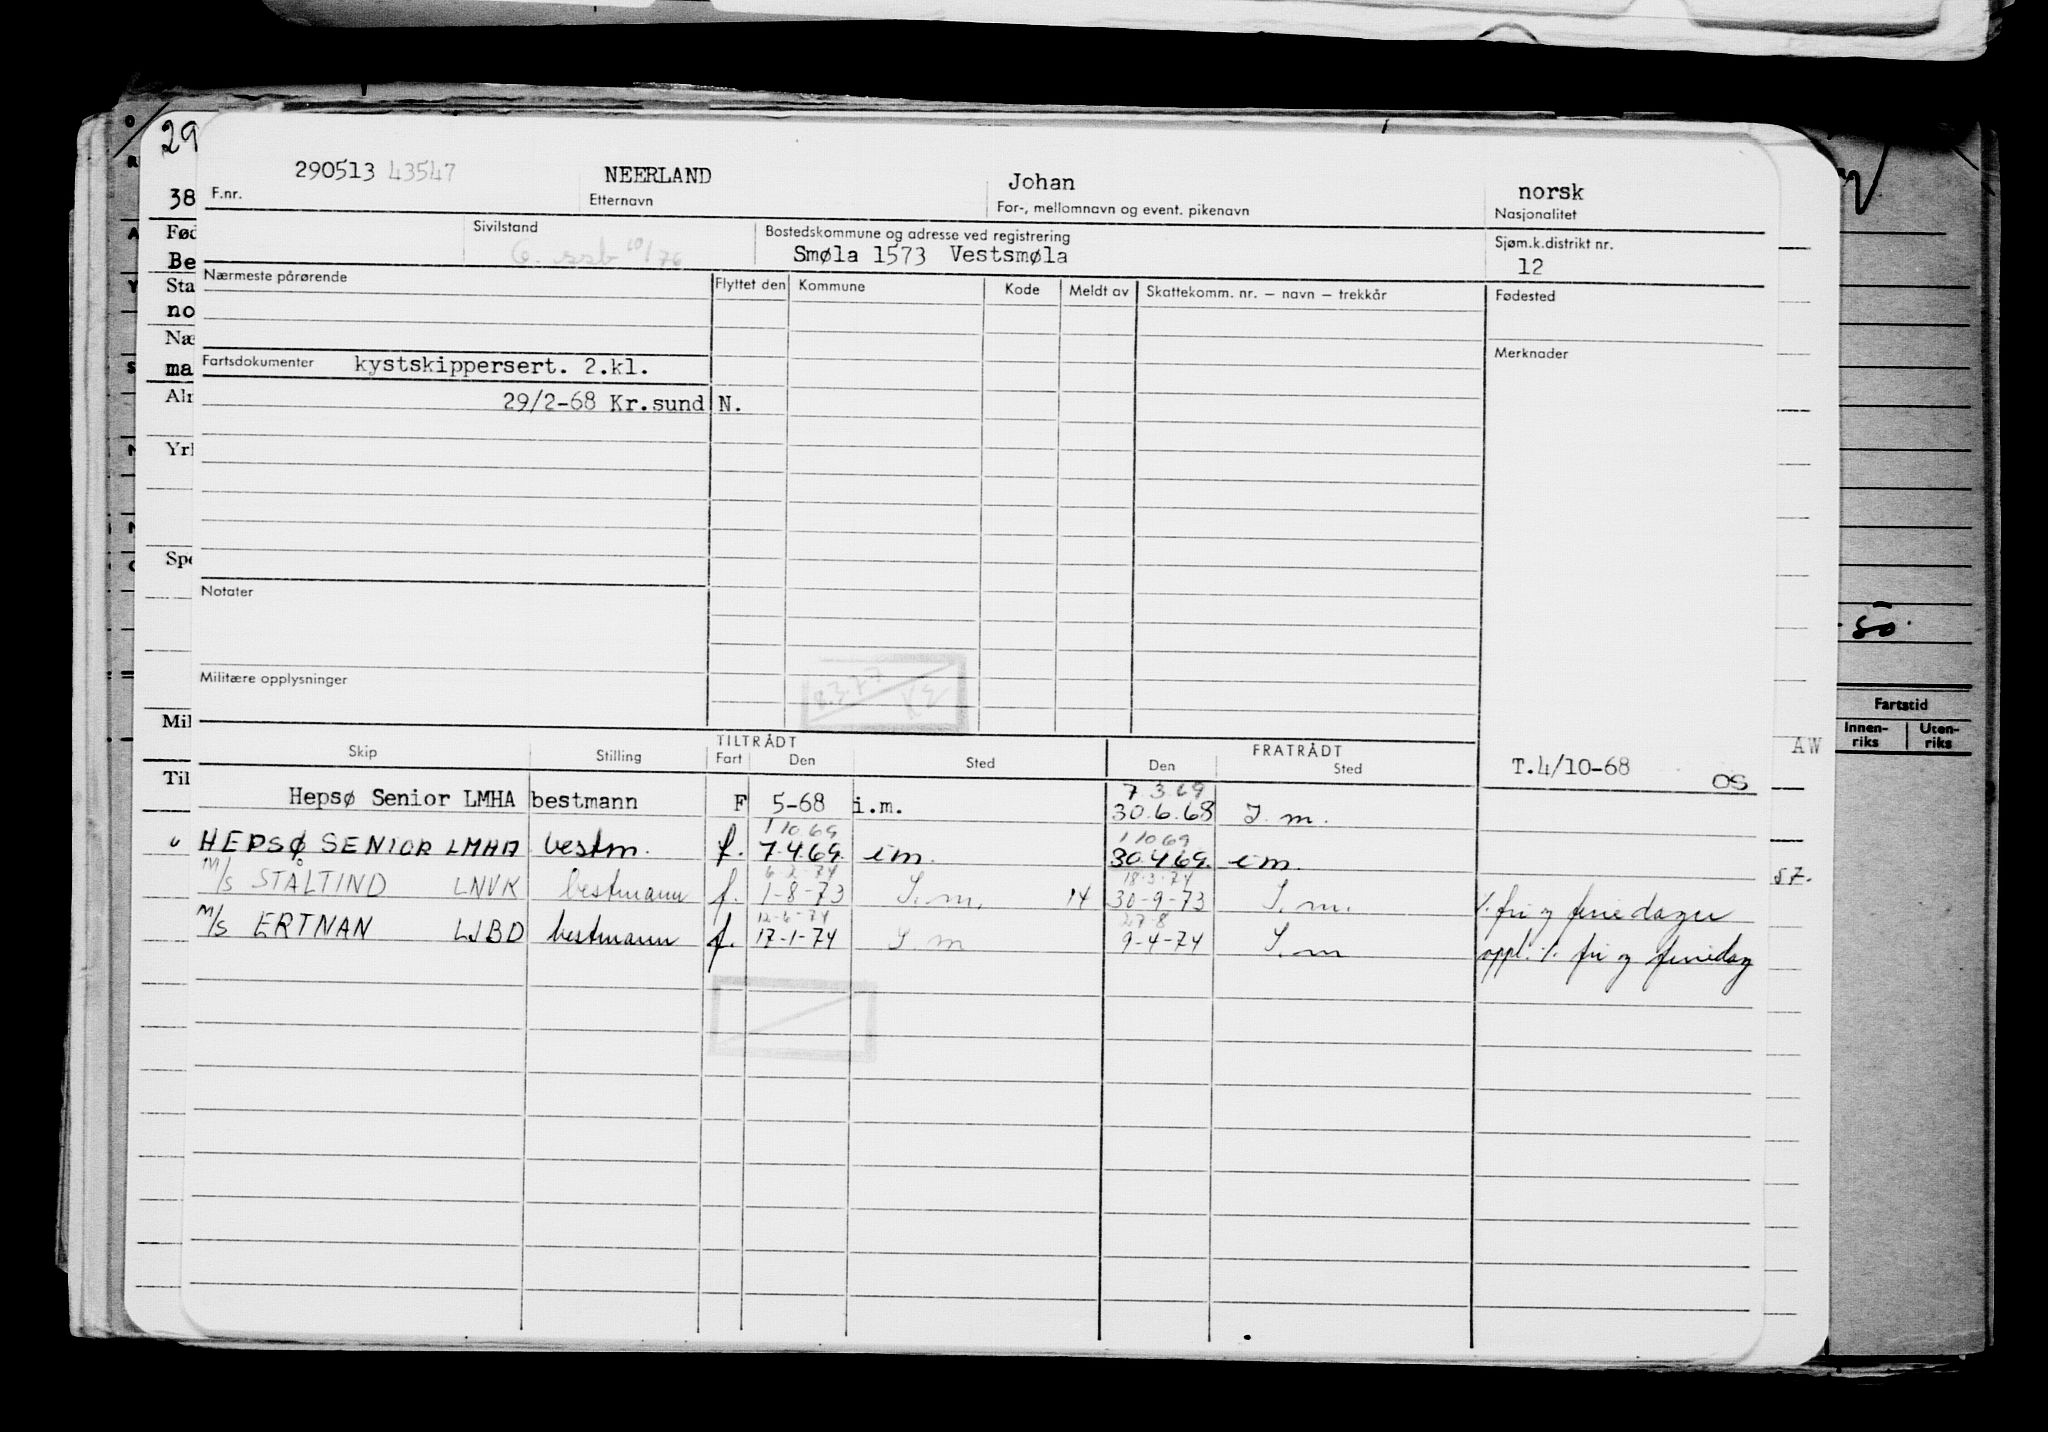 29
290513 43547 NEERLAND Johan norsk
38 F.nr. Etternavn For-, mellomnavn og event. pikenavn Nasjonalitet
Fød Sivilstand Bostedskommune og adresse ved registrering Sjøm.k.distrikt nr.
Be 6. ssb 10/76 Smøla 1573 Vestsmøla 12
Sta Nærmeste pårørende Flyttet den Kommune Kode Meldt av Skattekomm. nr. — navn — trekkår Fødested
no
Næ Merknader
ma Fartsdokumenter kystskippersert. 2.kl.
Alm 29/2-68 Kr.sund N.
Yrk
Spe
Notater
50.
Militære opplysninger
8.3.77
Fartstid
Innen-riks Uten-riks
Mil
TILTRÅDT FRATRÅDT
Skip Stilling Fart Den Sted Den Sted
AW
Til T.4/10-68 OS
7.3.69
Hepsø Senior LMHA bestmann F 5-68 i.m. 30.6.68 I.m.
1 10.69 1 10 69
" HEPSØ SENIOR LMHA bestm. f. 7.4.69. i m. 30.4.69. i m.
6-2-74 18-3-74
57.
M/S STÅLTIND LNVK bestmann f. 1-8-73 I.m. 14 30-9-73 I.m. ./. fri og feriedager
12-6-74 27-8
M/S ERTNAN LJBD bestmann f. 17-1-74 I.m 9-4-74 I.m oppl. ./. fri og feriedag